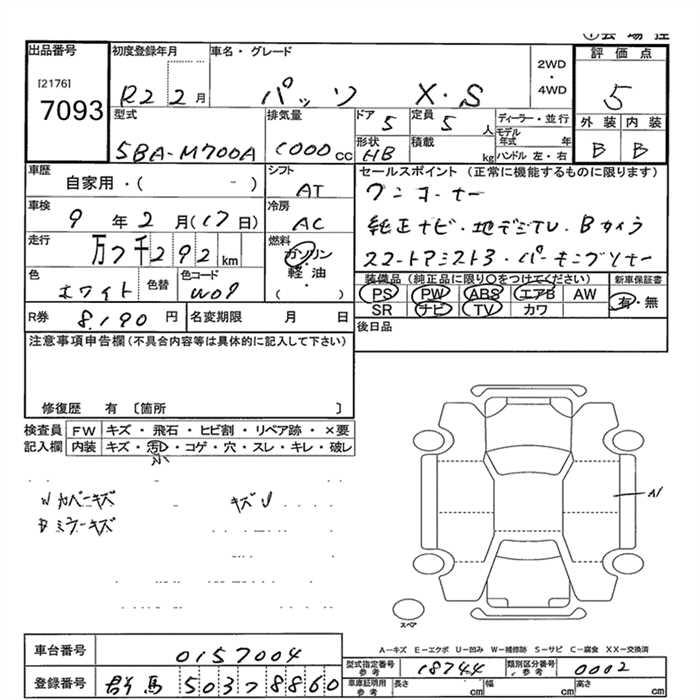 出品番号
[2176]
7093
初度登録年月
R2 2月
車名・グレード
パッソ X・S
2WD
・
4WD
評価点
5
外装 内装
B B
型式
5BA-M700A
排気量
1000cc
ドア
5
定員
5人
形状
HB
積載
kg
ディーラー・並行
モデル年式 年
ハンドル 左・右
車歴
自家用・( )
シフト
AT
セールスポイント (正常に機能するものに限ります)
ワンオーナー
純正ナビ・地デジTV・Bカメラ
スマートアシスト3・
車検
9年2月(17日)
冷房
AC
走行
万7千292km
燃料
ガソリン
・
軽油
・
( )
色
ホワイト
色替
色コード
W09
装備品 (純正品に限り○をつけてください)
PS PW ABS エアB AW
SR ナビ TV カワ
新車保証書
有・無
R券 8,190円
名変期限 月 日
後日品
注意事項申告欄(不具合内容等は具体的に記入して下さい)
修復歴 有 〔箇所 〕
検査員記入欄
FW キズ・飛石・ヒビ割・リペア跡・×要
内装 キズ・汚レ・コゲ・穴・スレ・キレ・破レ
小
Wカバーキズ
Bミラーキズ
A1
スペア
A-キズ E-エクボ U-凹み W-補修跡 S-サビ C-腐食 XX-交換済
車台番号 0157004
登録番号 群馬 503 8860
型式指定番号 参考 18744
類別区分番号 参考 0002
車庫証明用 参考 長さ cm 幅 cm 高さ cm